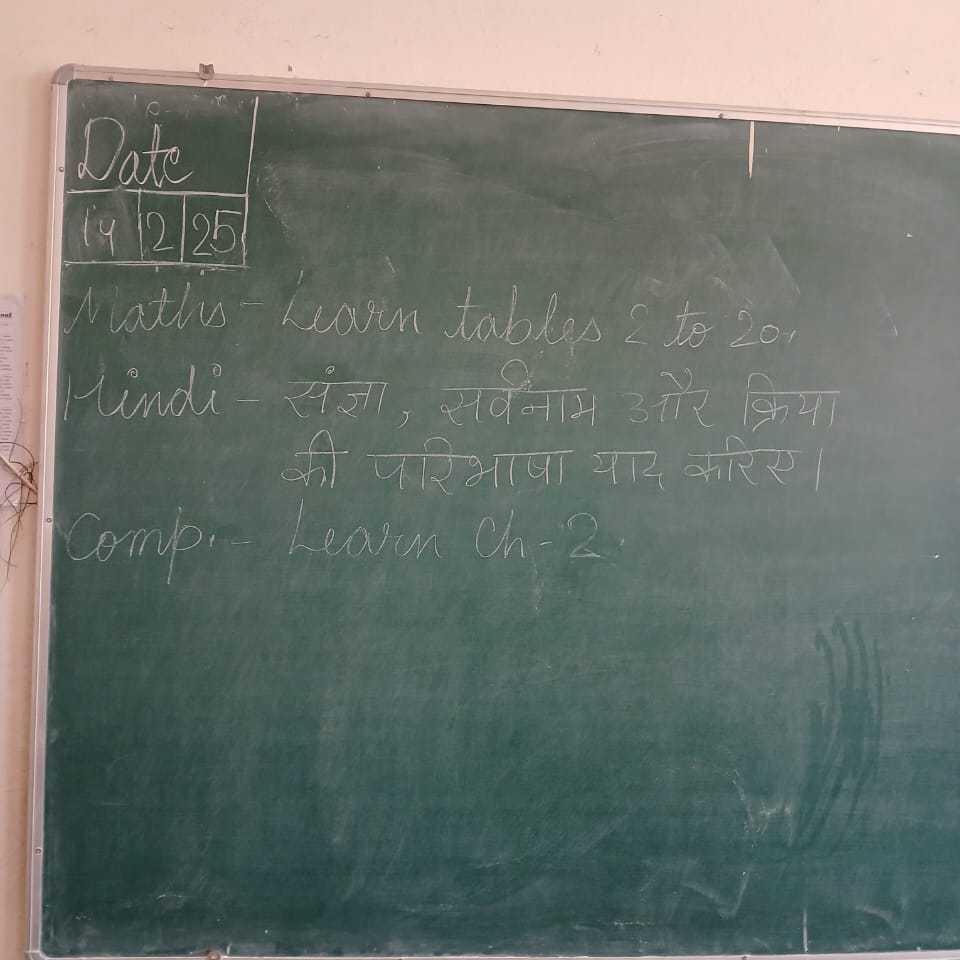 Date
14 2 25
Maths - Learn tables 2 to 20.
Hindi - संज्ञा, सर्वनाम और क्रिया
की परिभाषा याद करिए।
Comp. - Learn Ch - 2.